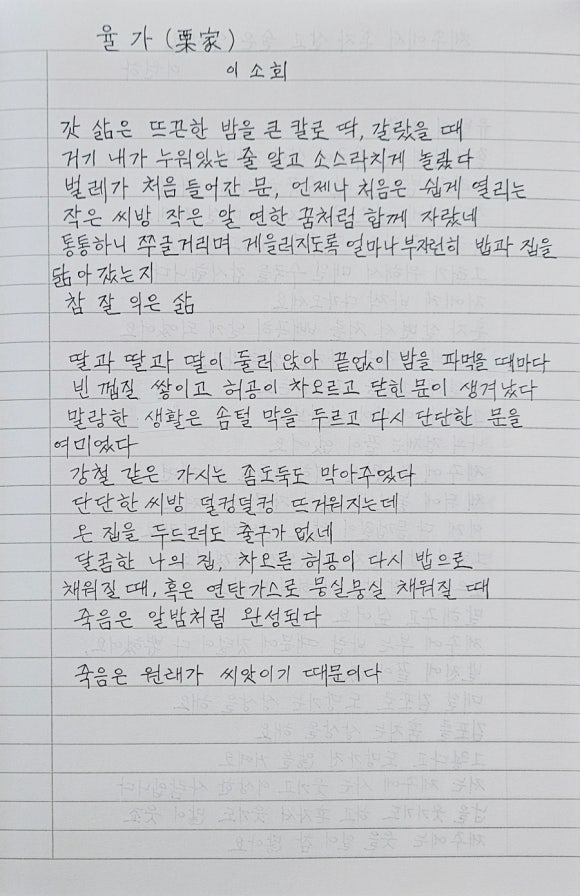 율가 (栗家)
이소회
갓 삶은 뜨끈한 밤을 큰 칼로 딱, 갈랐을 때
거기 내가 누워있는 줄 알고 소스라치게 놀랐다
벌레가 처음 들어간 문, 언제나 처음은 쉽게 열리는
작은 씨방 작은 알 연한 꿈처럼 함께 자랐네
통통하니 쭈글거리며 게을러지도록 얼마나 부지런히 밥과 집을
닮아갔는지
참 잘 익은 삶
딸과 딸과 딸이 둘러 앉아 끝없이 밤을 파먹을 때마다
빈 껍질 쌓이고 허공이 차오르고 닫힌 문이 생겨났다
말랑한 생활은 솜털 막을 두르고 다시 단단한 문을
여미었다
강철 같은 가시는 좀도둑도 막아주었다
단단한 씨방 덜컹덜컹 뜨거워지는데
온 집을 두드려도 출구가 없네
달콤한 나의 집, 차오른 허공이 다시 밥으로
채워질 때, 혹은 연탄가스로 뭉실뭉실 채워질 때
죽음은 알밤처럼 완성된다
죽음은 원래가 씨앗이기 때문이다